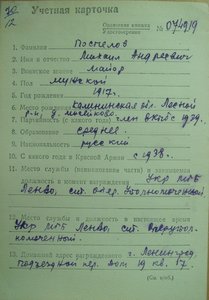 70
12.
Учетная карточка
Орденская книжка
Удостоверение № 074919
1. Фамилия Поспелов
2. Имя и отчество Михаил Андреевич
3. Воинское звание майор
4. Пол мужской
5. Год рождения 1917.
6. Место рождения Калининская обл. Лесной
р-н, д.
7. Партийность (с какого года) член ВКП(б) с 1939.
8. Образование среднее.
9. Национальность русский
10. С какого года в Красной Армии с 1938.
11. Место службы (наименование части) и занимаемая
должность к моменту награждения Укр МГБ
Ленво, ст. опер. уполномоченный.
12. Место службы и должность в настоящее время
Укр МГБ Ленво, ст. Оперупол-
номоченный.
13. Домашний адрес награжденного г. Ленинград,
Подъездной пер. дом 19 кв. 17.
(См. н/об.)